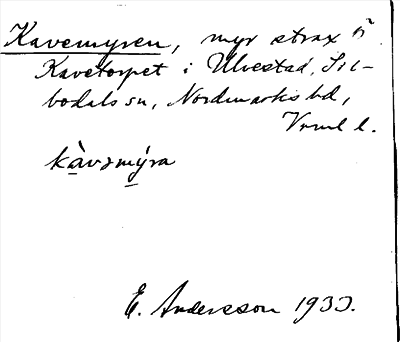 Kavemyren, myr strax n
Kavetorpet i Ulvestad, Sil-
bodals sn, Nordmarks hd,
Vrml l.
kàvəmýra
E. Andersson 1933.